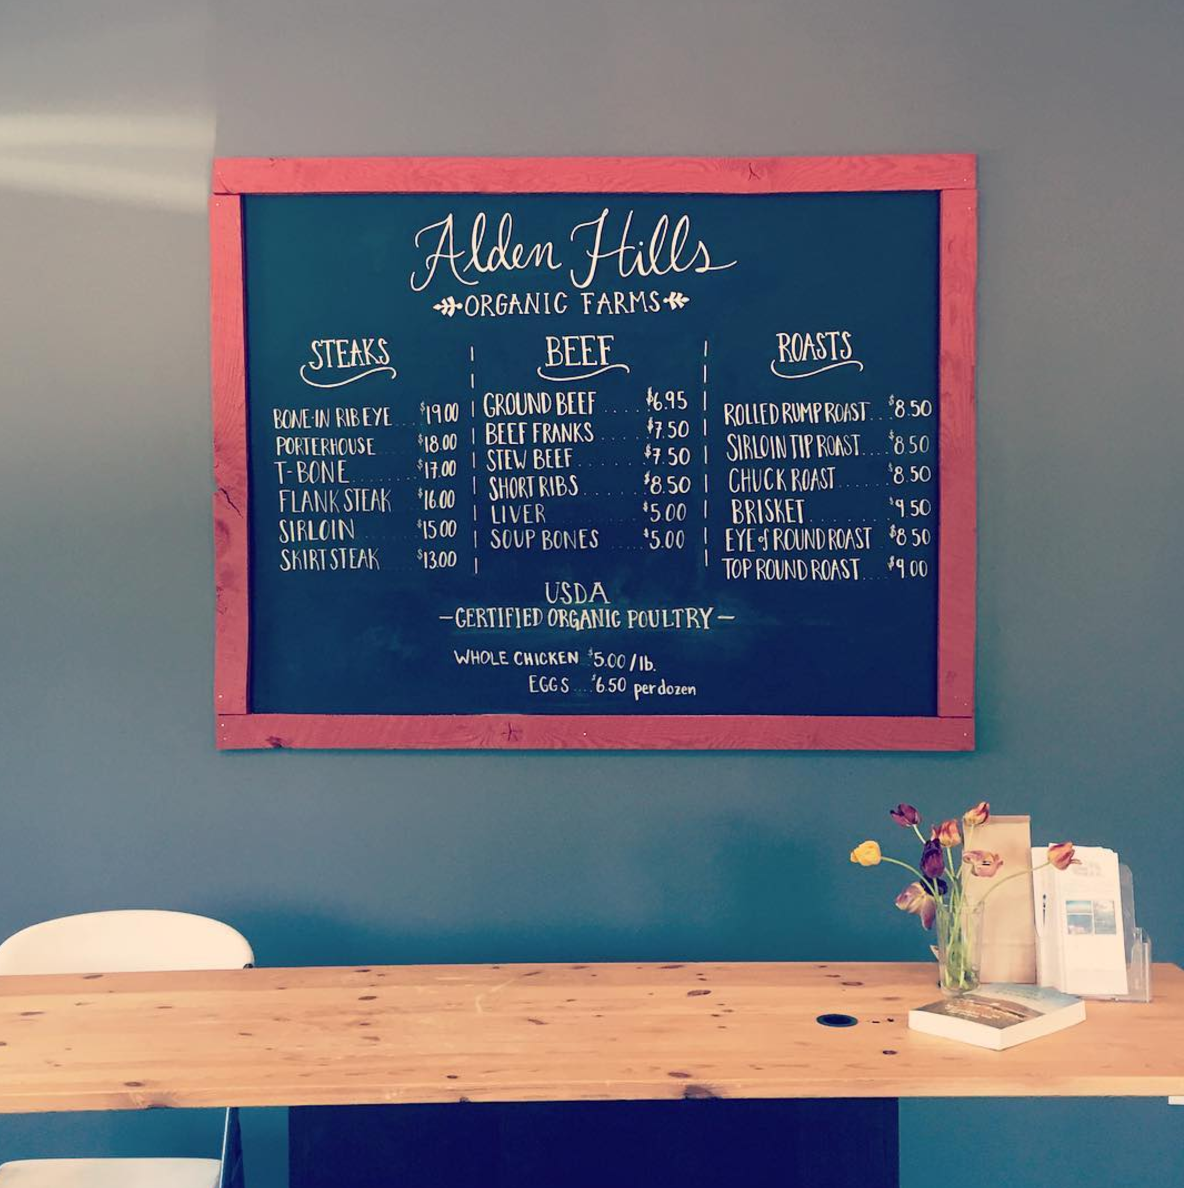 Alden Hills
ORGANIC FARMS
STEAKS
BONE-IN RIB EYE ... $19.00
PORTERHOUSE ... $18.00
T-BONE ... $17.00
FLANK STEAK $16.00
SIRLOIN ... $15.00
SKIRT STEAK ... $13.00
BEEF
GROUND BEEF .... $6.95
BEEF FRANKS ..... $7.50
STEW BEEF ....... $7.50
SHORT RIBS ...... $8.50
LIVER ......... $5.00
SOUP BONES ..... $5.00
ROASTS
ROLLED RUMP ROAST ... $8.50
SIRLOIN TIP ROAST .... $8.50
CHUCK ROAST ...... $8.50
BRISKET ......... $9.50
EYE of ROUND ROAST $8.50
TOP ROUND ROAST .... $9.00
USDA
-CERTIFIED ORGANIC POULTRY-
WHOLE CHICKEN $5.00/lb.
EGGS .... $6.50 per dozen